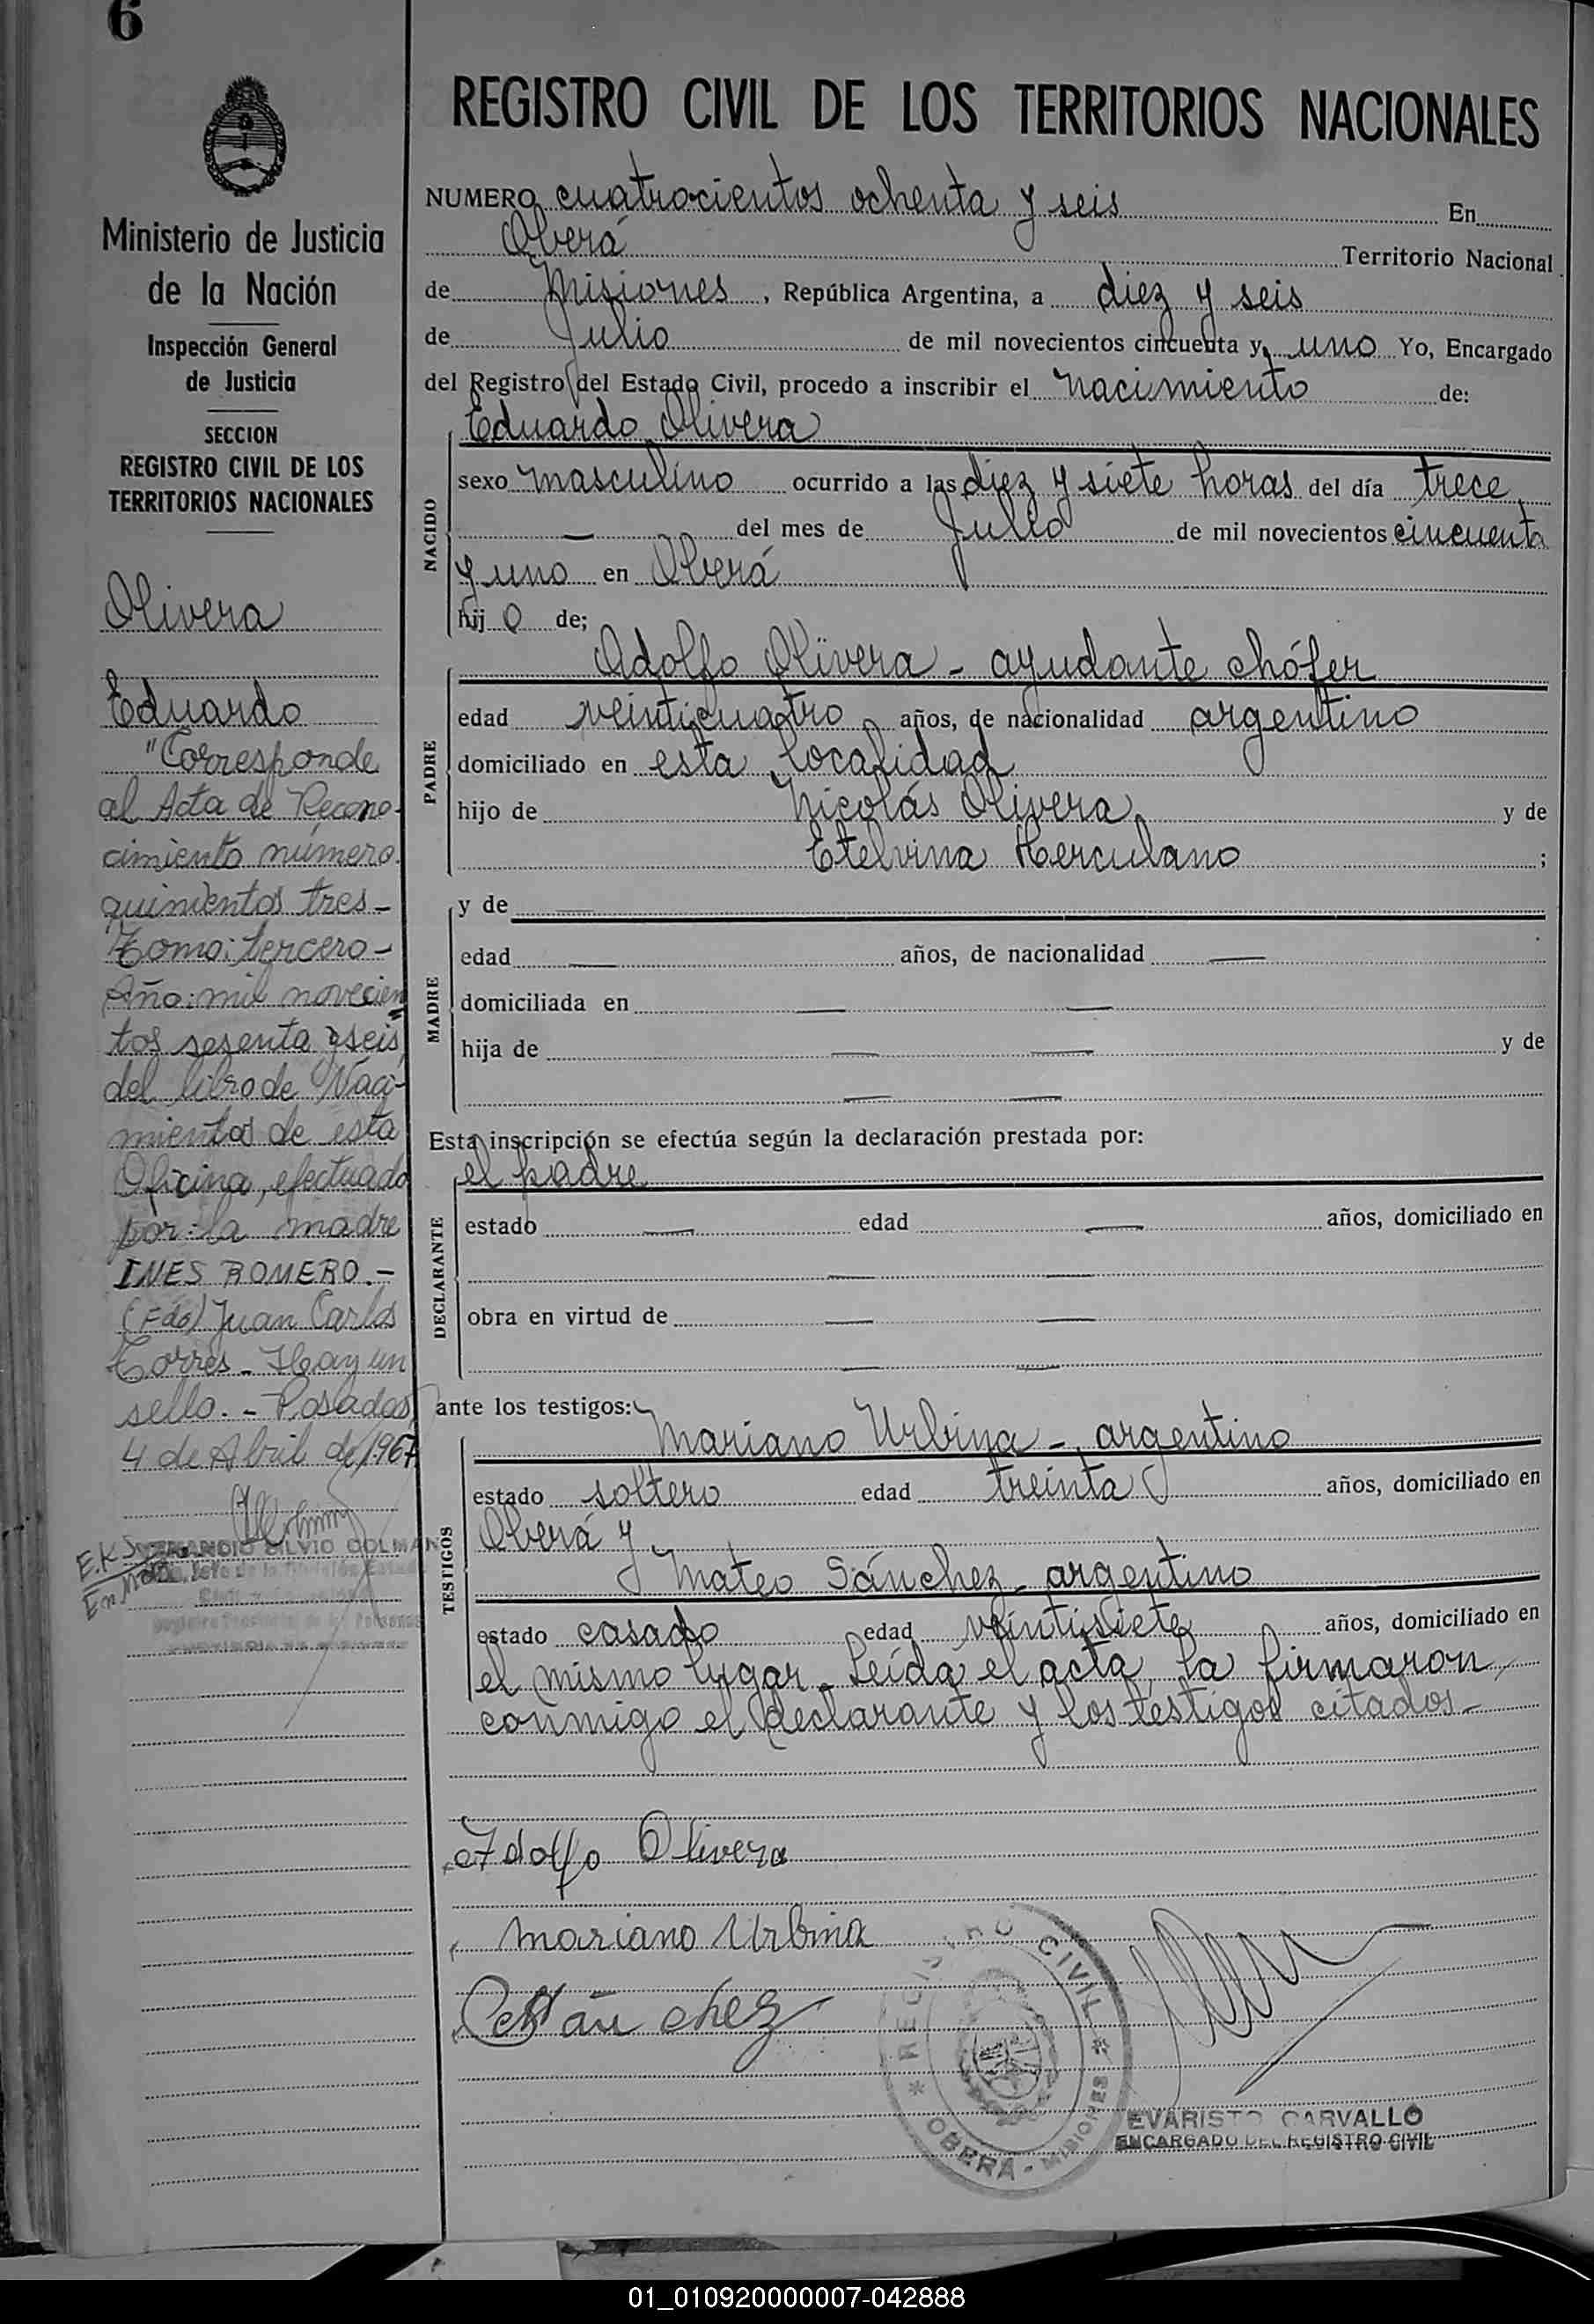 6
Ministerio de Justicia
de la Nación
Inspección General
de Justicia
SECCION
REGISTRO CIVIL DE LOS
TERRITORIOS NACIONALES
Olivera
Eduardo
"Corresponde
al Acta de Recono-
cimiento número
quinientos tres -
Tomo: tercero -
Año: mil novecien
tos sesenta y seis,
del libro de Naci-
mientos de esta
Oficina, efectuado
por: la madre
INES ROMERO. -
(Fdo) Juan Carlos
Torres - Hay un
sello. - Posadas,
4 de Abril de 1967
SILVIO COLMAN
REGISTRO CIVIL DE LOS TERRITORIOS NACIONALES
NUMERO cuatrocientos ochenta y seis En
Oberá Territorio Nacional
de Misiones, República Argentina, a diez y seis
de Julio de mil novecientos cincuenta y uno Yo, Encargado
del Registro del Estado Civil, procedo a inscribir el nacimiento de:
Eduardo Olivera
NACIDO
sexo masculino ocurrido a las diez y siete horas del día trece
— del mes de Julio de mil novecientos cincuenta
y uno en Oberá
hij o de;
Adolfo Olivera - ayudante chófer
PADRE
edad veinticuatro años, de nacionalidad argentino
domiciliado en esta localidad
hijo de Nicolás Olivera y de
Etelvina Herculano ;
MADRE
y de —
edad — años, de nacionalidad —
domiciliada en — —
hija de — — y de
— —
Esta inscripción se efectúa según la declaración prestada por:
el padre
DECLARANTE
estado — edad — años, domiciliado en
— —
obra en virtud de — —
— —
ante los testigos:
Mariano Urbina -, argentino
TESTIGOS
estado soltero edad treinta años, domiciliado en
Oberá y
Mateo Sánchez - argentino
estado casado edad veintisiete años, domiciliado en
el mismo lugar. Leída el acta, la firmaron
conmigo el declarante y los testigos citados -
Adolfo Olivera
Mariano Urbina
Sánchez
REGISTRO CIVIL * OBERÁ - MISIONES *
EVARISTO CARVALLO
ENCARGADO DEL REGISTRO CIVIL
01_010920000007-042888